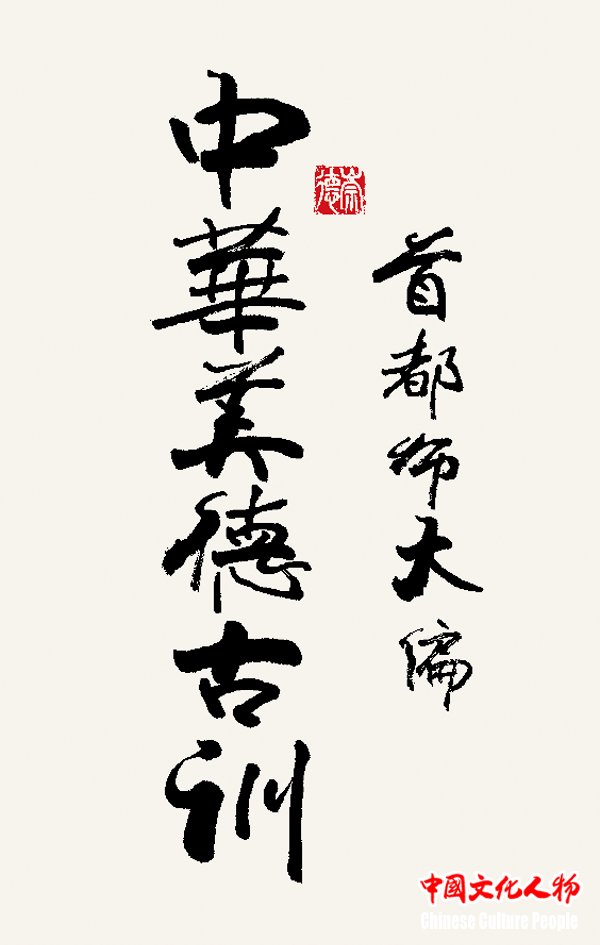 首都师大编
中華美德古训
崇德
中國文化人物
Chinese Culture People